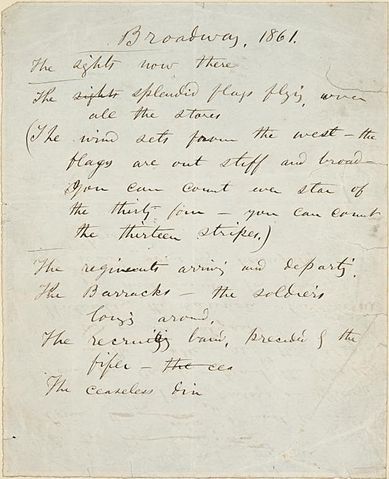 Broadway, 1861.
The sights now there
The sights splendid flags flying over
all the stores
(The wind sets from the west – the
flags are out stiff and broad –
You can count ever star of
the thirty four – you can count
the thirteen stripes.)
The regiments arriving and departing,
The Barracks – the soldiers
lounging around,
The recruiting band, preceded by the
fifer – the cea
The ceaseless din